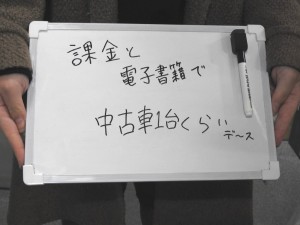 課金と
電子書籍で
中古車1台くらい
デース